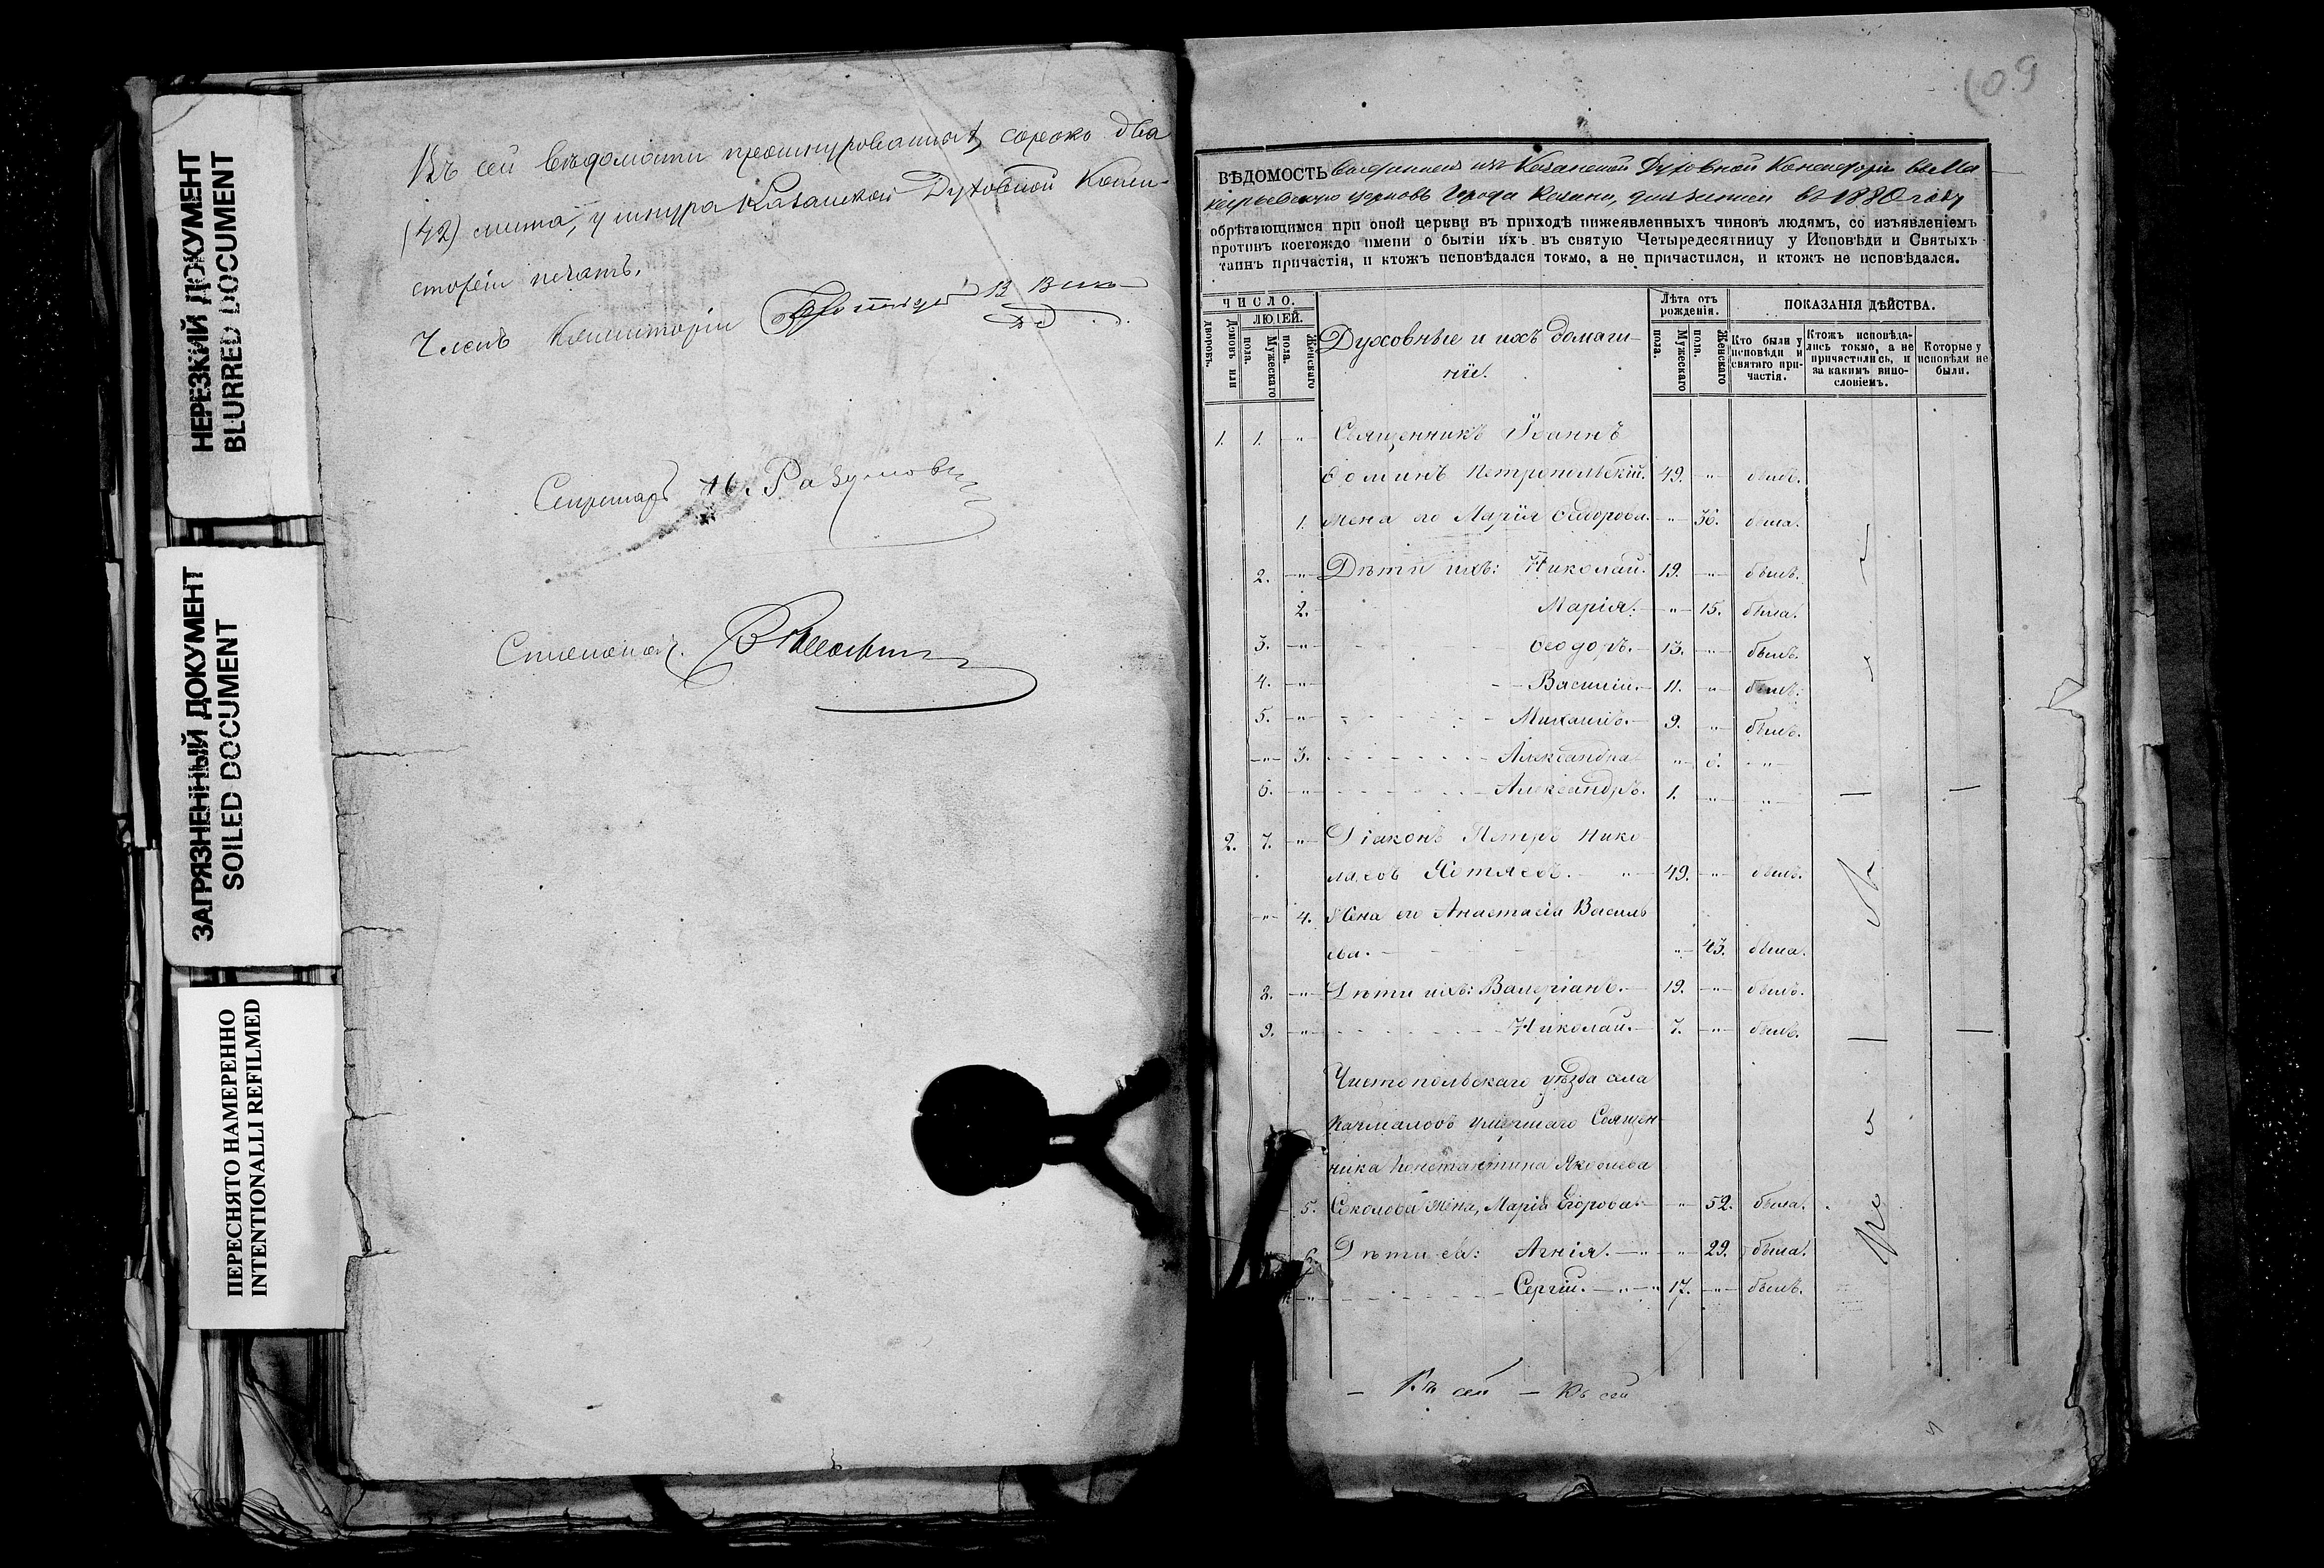 НЕРЕЗКИЙ ДОКУМЕНТ
BLURRED DOCUMENT
ЗАГРЯЗНЕННЫЙ ДОКУМЕНТ
SOILED DOCUMENT
ПЕРЕСНЯТО НАМЕРЕННО
INTENTIONALLI REFILMED
Въ сей вѣдомости прошнурованныхъ сорокъ два
(42) листа, у шнура Казанской Духовной Конси-
сторіи печать.
Членъ Консисторіи Протоіерей В.
Секретарь Н. Разумов
Столонач.
109
ВѢДОМОСТЬ выданная изъ Казанской Духовной Консисторіи въ Ма
карьевскую церковь Города Казани, для записи въ 1880 году
обрѣтающимся при оной церкви въ приходѣ нижеявленныхъ чиновъ людямъ, со изъявленіемъ
противъ коегождо имени о бытіи ихъ въ святую Четыредесятницу у Исповѣди и Святыхъ
таинъ причастія, и ктожъ исповѣдался токмо, а не причастился, и ктожъ не исповѣдался.
ЧИСЛО.
ЛЮДЕЙ.
Домовъ или дворовъ.
Мужескаго пола.
Женскаго пола.
Духовные и ихъ домаш-
ніе.
Лѣта отъ рожденія.
Мужескаго пола.
Женскаго пола.
ПОКАЗАНІЯ ДѢЙСТВА.
Кто были у исповѣди и святаго при-частія.
Ктожъ исповѣда-лись токмо, а не причастились, и за какимъ вино-словіемъ.
Которые у исповѣди не были.
1. 1. -"- Священникъ Іоаннъ
Ѳоминъ Петропольскій. 49. -"- былъ.
1. Жена его Марія Ѳедорова. -"- 36. была.
2. -"- Дѣти ихъ: Николай. 19. -"- былъ.
2. Марія. -"- 15. была.
3. -"- Ѳеодоръ. 13. -"- былъ.
4. -"- Василій. 11. -"- былъ.
5. -"- Михаилъ. 9. -"- былъ.
-"- 3. Александра -"- 6. -"-
6. -"- Александръ. 1. -"- -"-
2. 7. -"- Діаконъ Петръ Нико
лаевъ 49. -"- былъ.
-"- 4. Жена его Анастасія Василь
ева. -"- 43. была.
8. -"- Дѣти ихъ: Валеріанъ. 19. -"- былъ.
9. -"- Николай. 7. -"- былъ.
Чистопольскаго уѣзда села
Кармаловъ умершаго Священ
ника Константина Яковлева
5. Соколова жена, Марія Егорова. -"- 52. была.
6. Дѣти ея: Агнія. -"- 29. была.
-"- Сергій. 17. -"- былъ.
— Въ сей — Къ сей